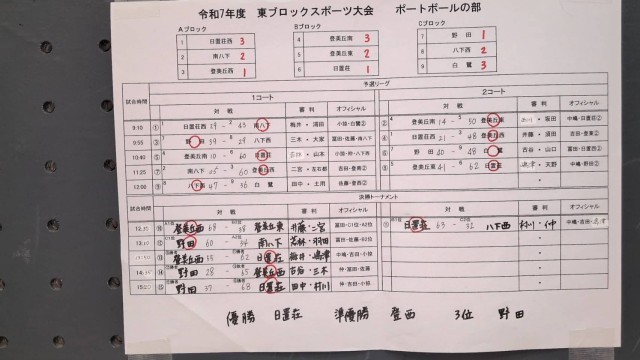 令和7年度 東ブロックスポーツ大会 ポートボールの部
Aブロック Bブロック Cブロック
1 日置荘西 3 4 登美丘南 3 7 野田 1
2 南八下 2 5 登美丘東 2 8 八下西 2
3 登美丘西 1 6 日置荘 1 9 白鷺 3
予選リーグ
試合時間 1コート 2コート
対戦 審判 オフィシャル 対戦 審判 オフィシャル
9:10 ① 日置荘西 19 - 43 南八下 小林・白鷺② ② 登美丘南 14 - 50 登美丘東 中嶋・日置荘②
9:55 ③ 野田 39 - 28 八下西 三木・大家 冨田・佐藤・南八下 ④ 日置荘西 21 - 48 登美丘西 井藤・須田 中嶋・吉田・登美東②
10:40 ⑤ 登美丘南 10 - 60 日置荘 山本 ⑥ 野田 40 - 48 白鷺 古谷・山口 冨田・日置荘西②
11:25 ⑦ 南八下 35 - 60 登美丘西 二宮・左右都 吉田・登美南② ⑧ 登美丘東 41 - 62 日置荘 天野 中嶋・野田②
12:00 ⑨ 八下西 47 - 36 白鷺 田中・土用 佐藤・登美西②
決勝トーナメント
試合時間 対戦 審判 オフィシャル 対戦 審判 オフィシャル
登美丘西 68 - 38 登美丘東 井藤・二宮 冨田・C1位・A3位 日置荘 63 - 32 八下西 村川・仲 中嶋・吉田
野田 60 - 34 南八下 若林・羽田
登美丘西 55 - 62 日置荘 梅井・嶋津 中嶋・吉田・小林
野田 28 - 65 登美丘西 古谷・三木 仲・冨田・佐藤
野田 37 - 68 日置荘 田中・村川 仲・吉田・小林
優勝 日置荘 準優勝 登西 3位 野田